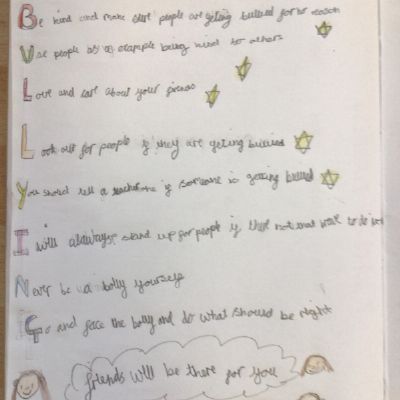 Be kind and make sure people are geting bullied for no reason
Use people as a example being kind to others
Love and care about your friends
Look out for people if they are geting bullied
You should tell a teacher if someone is getting bullied
I will always stand up for people if there not
Never be a bolly yourself
Go and face the bolly and do what should be right
friends will be there for you